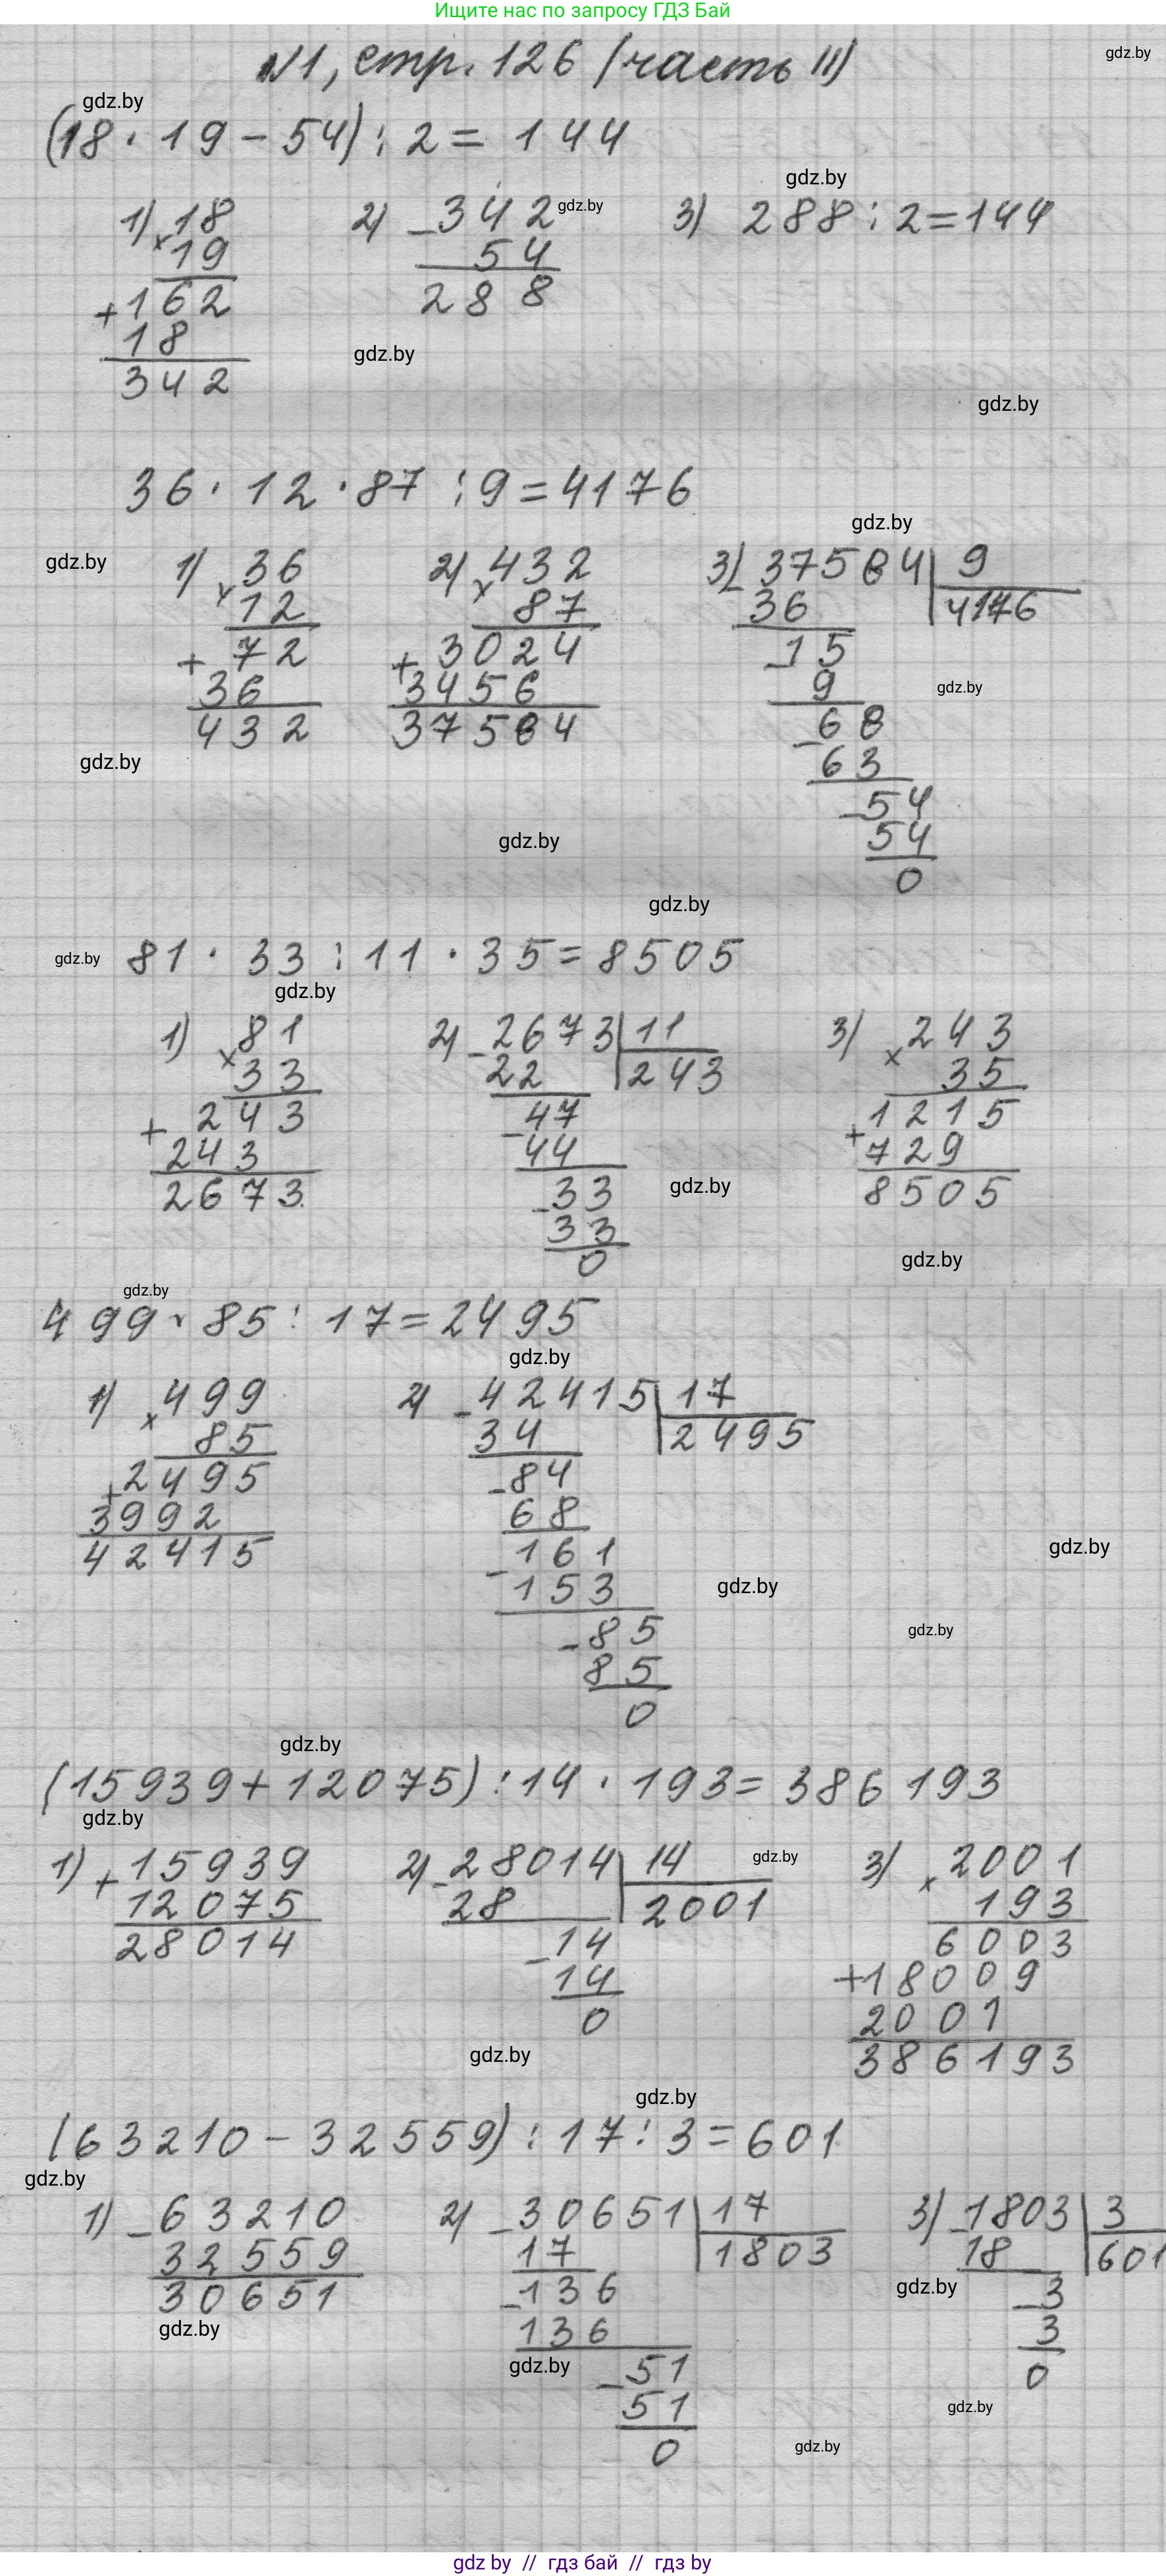 Ищите нас по запросу ГДЗ Бай
№1, стр. 126 (часть II)
gdz.by
gdz.by
(18 · 19 - 54) : 2 = 144
gdz.by
1) 18 2) - 342 gdz.by 3) 288 : 2 = 144
× 19 54
+ 162 288
18
gdz.by
342
gdz.by
36 · 12 · 87 : 9 = 4176
gdz.by
gdz.by
1) × 36 2) × 432 3) - 37584 | 9
12 87 36 4176
+ 72 + 3024 - 15
36 3456 9 gdz.by
432 37584 - 68
gdz.by
63
- 54
gdz.by
54
0
gdz.by
gdz.by
81 · 33 : 11 · 35 = 8505
gdz.by
1) × 81 2) - 2673 | 11 3) × 243
33 22 243 35
+ 243 - 47 + 1215
243 44 729
2673 - 33 gdz.by 8505
33
0
gdz.by
gdz.by
499 · 85 : 17 = 2495
gdz.by
1) × 499 2) - 42415 | 17
85 34 2495
+ 2495 - 84
3992 68
42415 - 161
gdz.by
153 gdz.by
- 85 gdz.by
85
0
gdz.by
(15939 + 12075) : 14 · 193 = 386193
gdz.by
1) + 15939 2) - 28014 | 14 gdz.by 3) × 2001
12075 28 2001 193
28014 - 14 6003
14 + 18009
0 2001
gdz.by 386193
gdz.by
(63210 - 32559) : 17 : 3 = 601
gdz.by
1) - 63210 2) - 30651 | 17 3) - 1803 | 3
32559 17 1803 18 601
30651 - 136 gdz.by - 3
gdz.by 136 3
gdz.by - 51 0
51 gdz.by
0 gdz.by
gdz by // гдз бай // гдз by